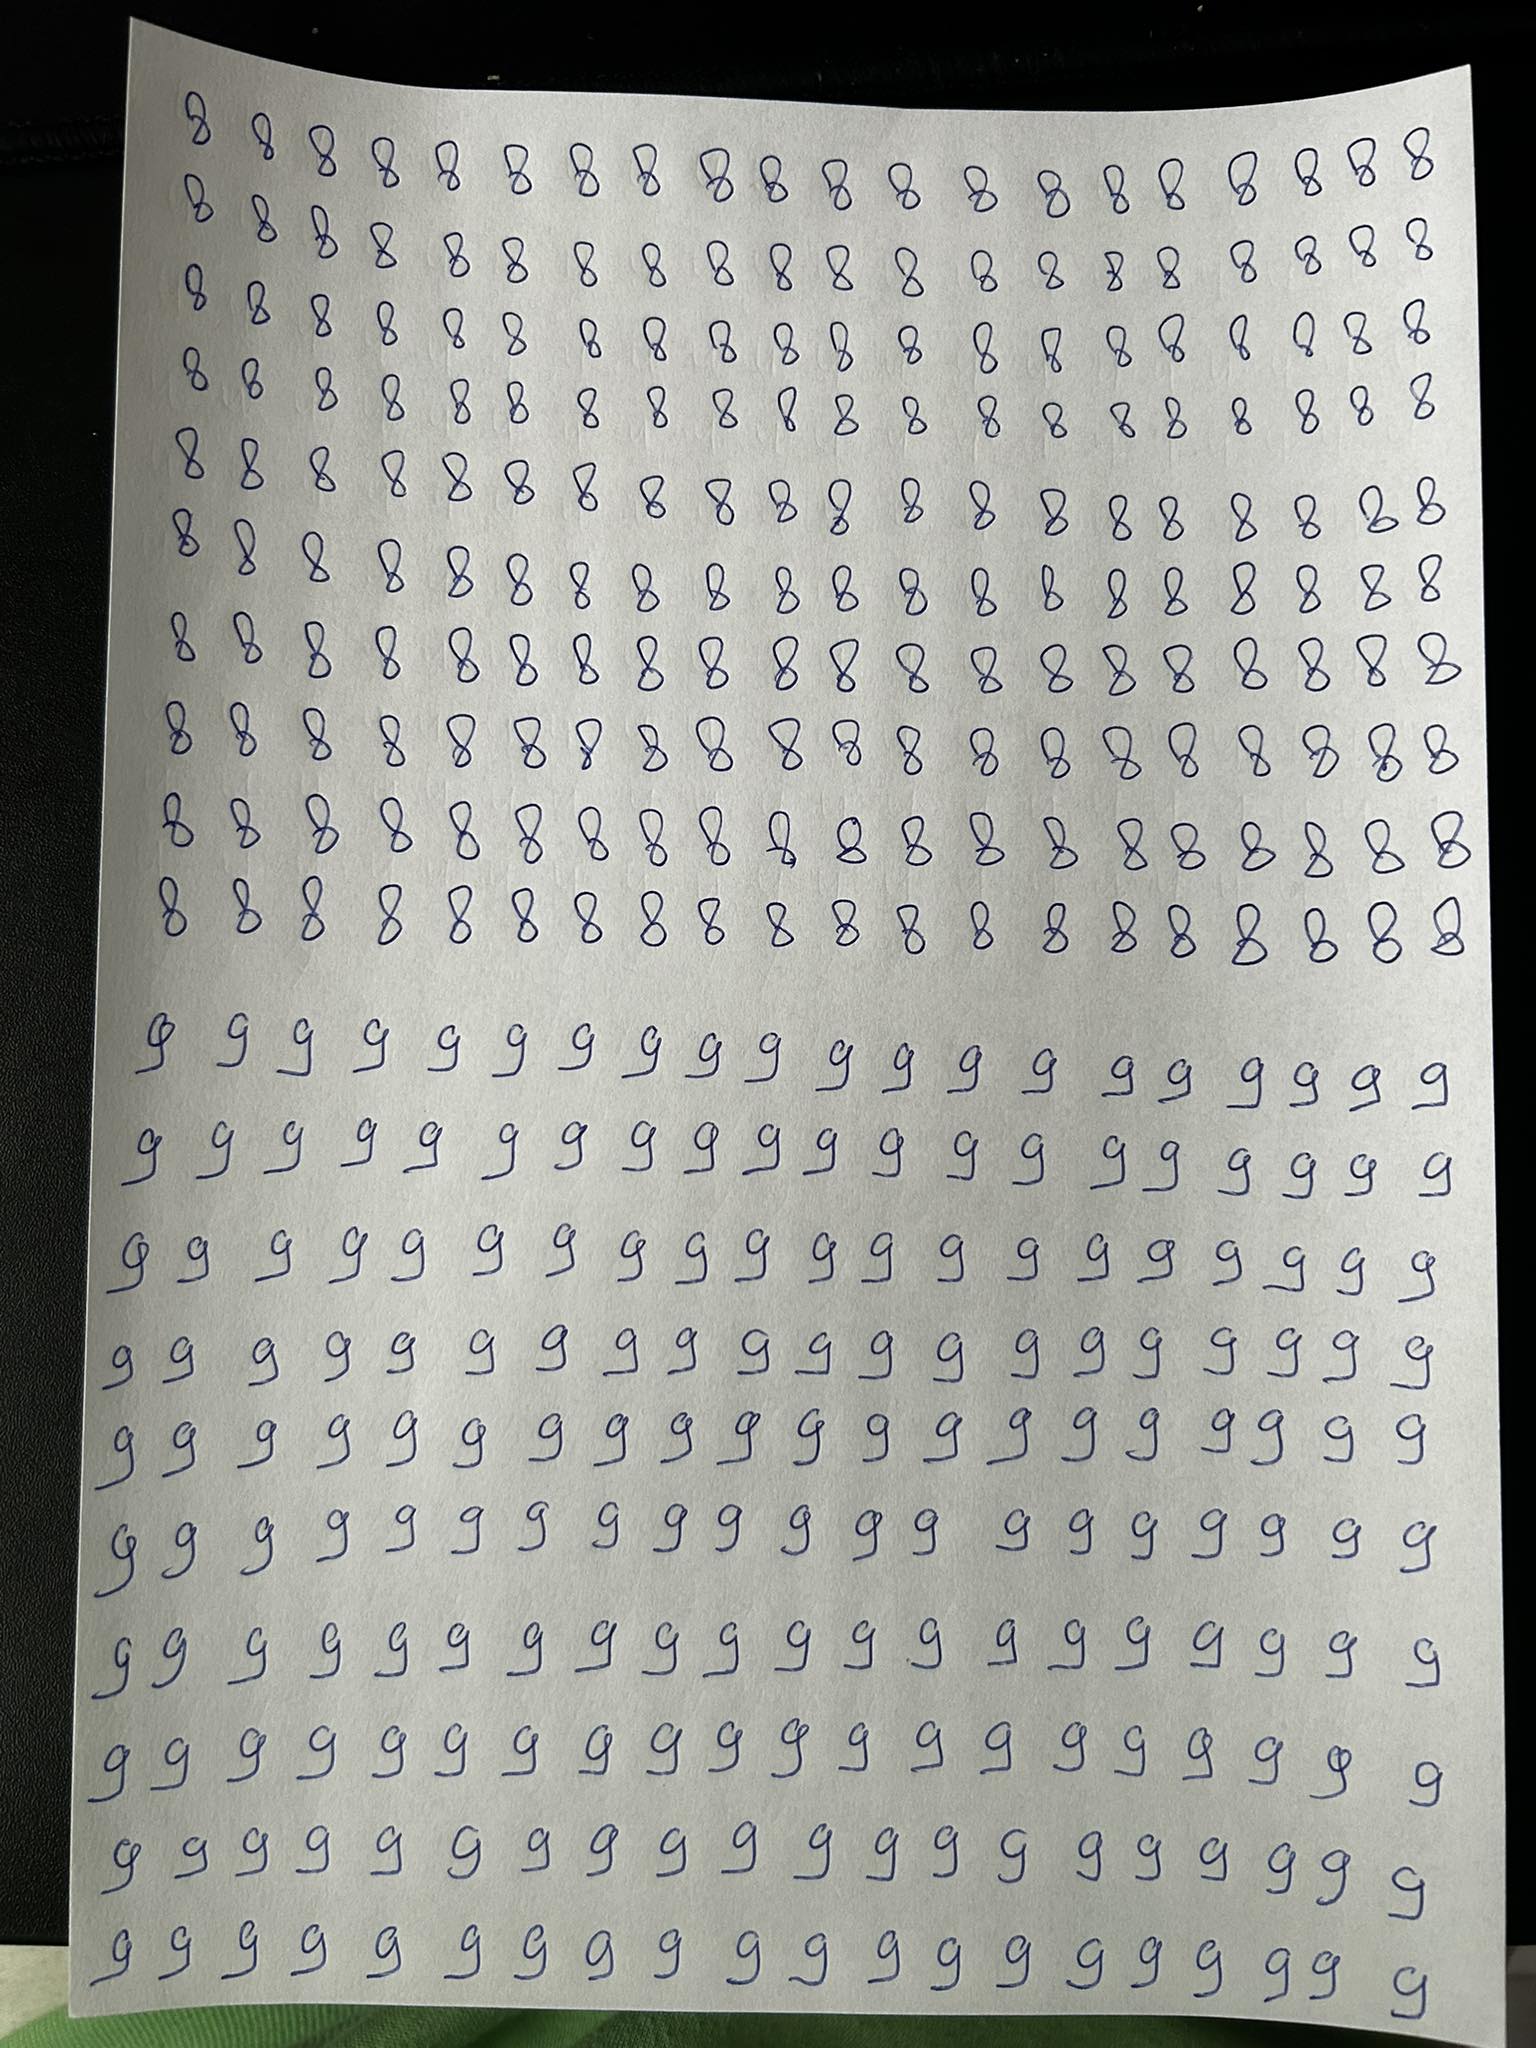 8 8 8 8 8 8 8 8 8 8 8 8 8 8 8 8 8 8 8 8
8 8 8 8 8 8 8 8 8 8 8 8 8 8 8 8 8 8 8 8
8 8 8 8 8 8 8 8 8 8 8 8 8 8 8 8 8 8 8 8
8 8 8 8 8 8 8 8 8 8 8 8 8 8 8 8 8 8 8 8
8 8 8 8 8 8 8 8 8 8 8 8 8 8 8 8 8 8 8 8
8 8 8 8 8 8 8 8 8 8 8 8 8 8 8 8 8 8 8 8
8 8 8 8 8 8 8 8 8 8 8 8 8 8 8 8 8 8 8 8
8 8 8 8 8 8 8 8 8 8 8 8 8 8 8 8 8 8 8 8
8 8 8 8 8 8 8 8 8 8 8 8 8 8 8 8 8 8 8 8
8 8 8 8 8 8 8 8 8 8 8 8 8 8 8 8 8 8 8 8
9 9 9 9 9 9 9 9 9 9 9 9 9 9 9 9 9 9 9 9
9 9 9 9 9 9 9 9 9 9 9 9 9 9 9 9 9 9 9 9
9 9 9 9 9 9 9 9 9 9 9 9 9 9 9 9 9 9 9 9
9 9 9 9 9 9 9 9 9 9 9 9 9 9 9 9 9 9 9 9
9 9 9 9 9 9 9 9 9 9 9 9 9 9 9 9 9 9 9 9
9 9 9 9 9 9 9 9 9 9 9 9 9 9 9 9 9 9 9 9
9 9 9 9 9 9 9 9 9 9 9 9 9 9 9 9 9 9 9 9
9 9 9 9 9 9 9 9 9 9 9 9 9 9 9 9 9 9 9 9
9 9 9 9 9 9 9 9 9 9 9 9 9 9 9 9 9 9 9 9
9 9 9 9 9 9 9 9 9 9 9 9 9 9 9 9 9 9 9 9